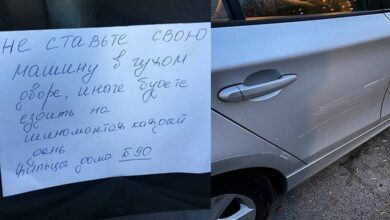 не ставьте свою
машину в чужом
дворе, иначе будете
ездить на
шиномонтаж каждый
день.
жильцы дома 590